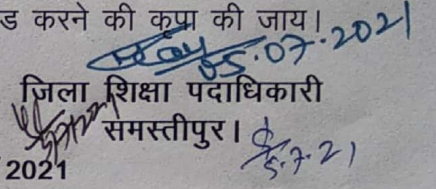 ड करने की कृपा की जाय।
05.07.2021
जिला शिक्षा पदाधिकारी
समस्तीपुर।
5.7.21
2021